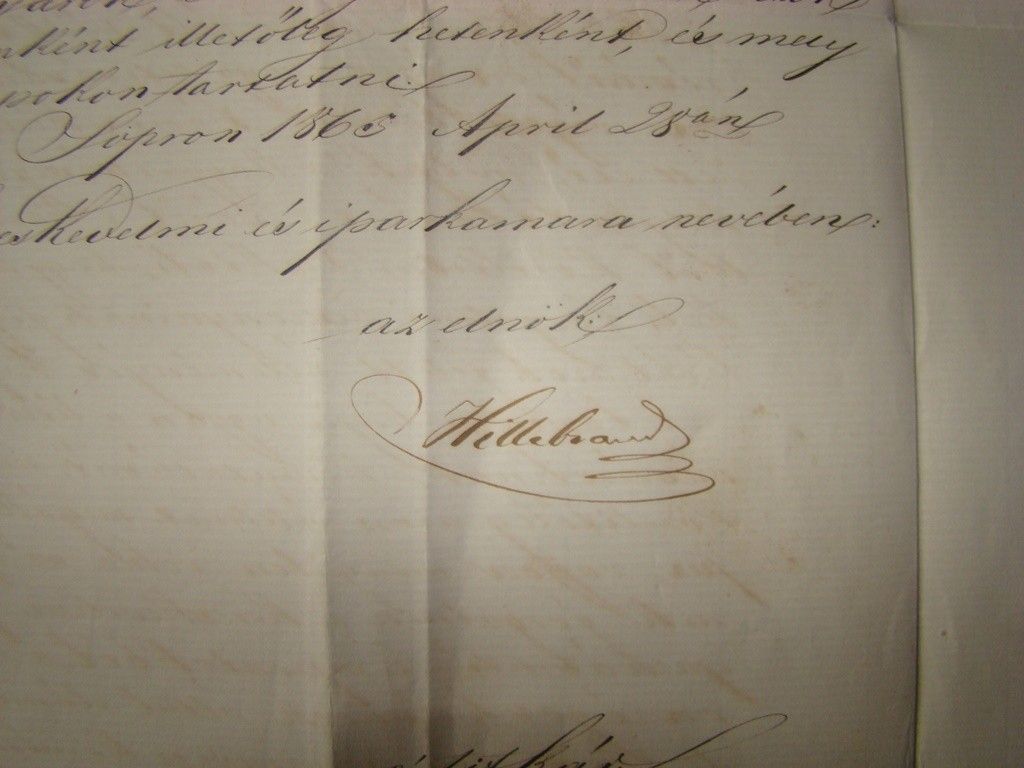 nként illetőleg hetenként, és mely
pokon tartatni.
Sopron 1865 April 28án
eskedelmi és iparkamara nevében:
az elnök:
Hillebrand
titkár